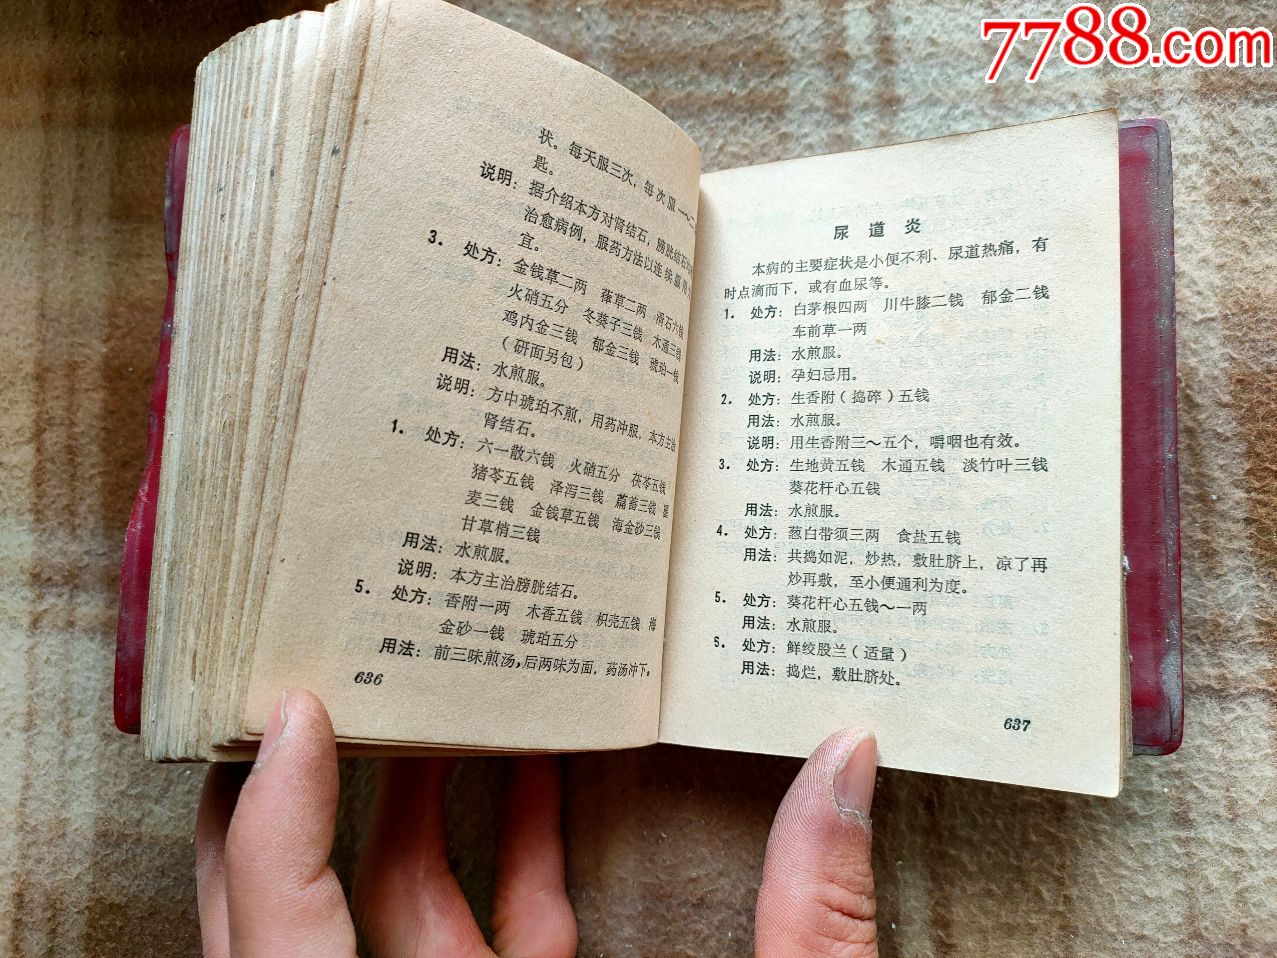 7788.com
状。每天服三次，每次服一～二
匙。
说明：据介绍本方对肾结石，膀胱结石
治愈病例，服药方法以连续服用为
宜。
3．处方：金钱草二两 葎草二两 滑石六钱
火硝五分 冬葵子三钱 木通三钱
鸡内金三钱 郁金三钱 琥珀一钱
（研面另包）
用法：水煎服。
说明：方中琥珀不煎，用药冲服，本方主治
肾结石。
1．处方：六一散六钱 火硝五分 茯苓五钱
猪苓五钱 泽泻三钱 萹蓄三钱 瞿
麦三钱 金钱草五钱 海金砂三钱
甘草梢三钱
用法：水煎服。
说明：本方主治膀胱结石。
5．处方：香附一两 木香五钱 枳壳五钱
金砂一钱 琥珀五分
用法：前三味煎汤，后两味为面，药汤冲下。
636
尿道炎
本病的主要症状是小便不利、尿道热痛，有
时点滴而下，或有血尿等。
1．处方：白茅根四两 川牛膝二钱 郁金二钱
车前草一两
用法：水煎服。
说明：孕妇忌用。
2．处方：生香附（捣碎）五钱
用法：水煎服。
说明：用生香附三～五个，嚼咽也有效。
3．处方：生地黄五钱 木通五钱 淡竹叶三钱
葵花杆心五钱
用法：水煎服。
4．处方：葱白带须三两 食盐五钱
用法：共捣如泥，炒热，敷肚脐上，凉了再
炒再敷，至小便通利为度。
5．处方：葵花杆心五钱～一两
用法：水煎服。
6．处方：鲜绞股兰（适量）
用法：捣烂，敷肚脐处。
637